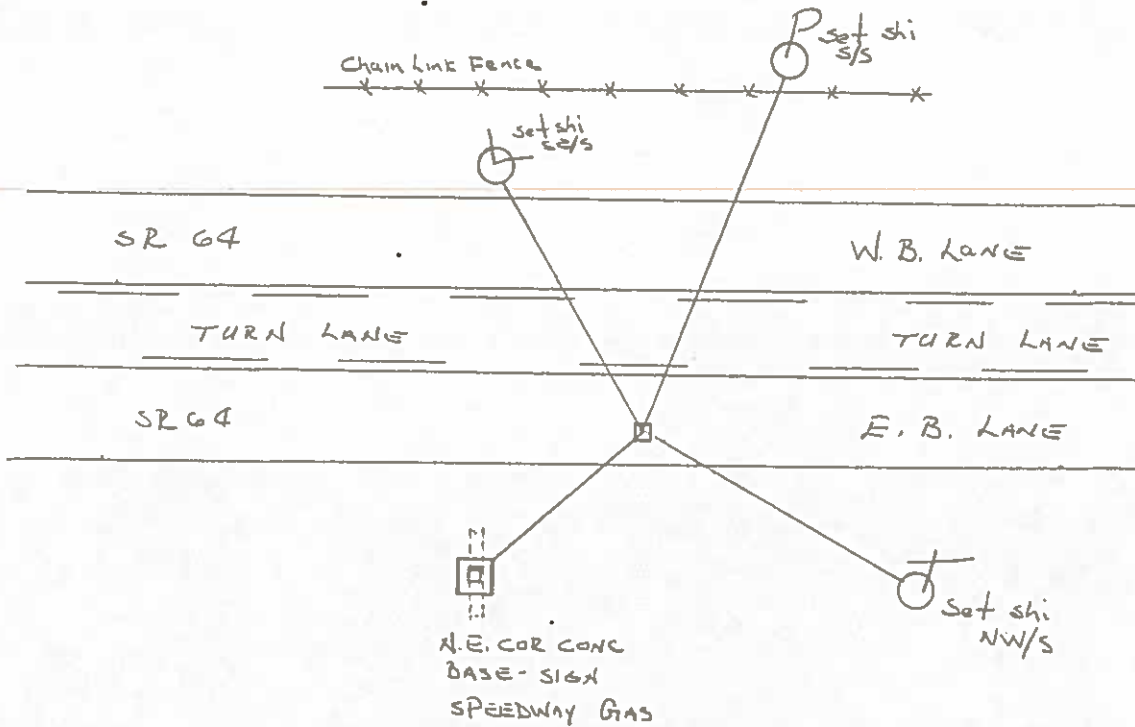 P set shi
S/S
Chain Link Fence
set shi
SE/S
SR 64
W. B. LANE
TURN LANE
TURN LANE
SR 64
E. B. LANE
Set shi
NW/S
N.E. COR CONC
BASE - SIGN
SPEEDWAY GAS